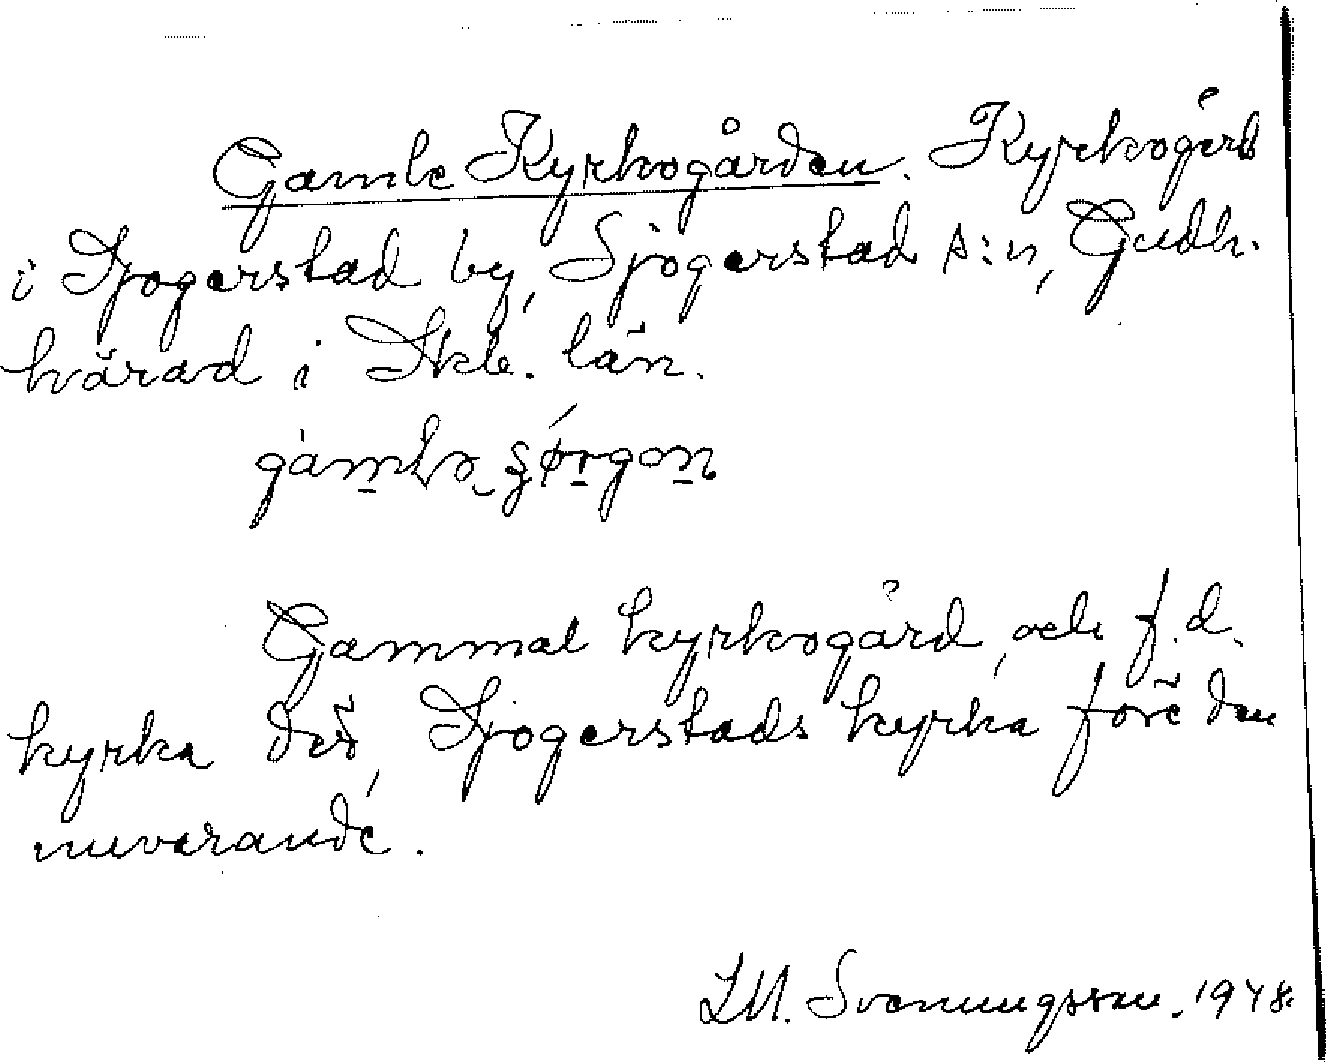 Gamle Kyrkogården. Kyrkogård
i Sjogerstad by, Sjogerstad s:n, Gudh.
härad i Skb. län.
Gammal kyrkogård, och f.d.
kyrka der, Sjogerstads kyrka före den
nuvarande.
LM. Svenungsson. 1948.